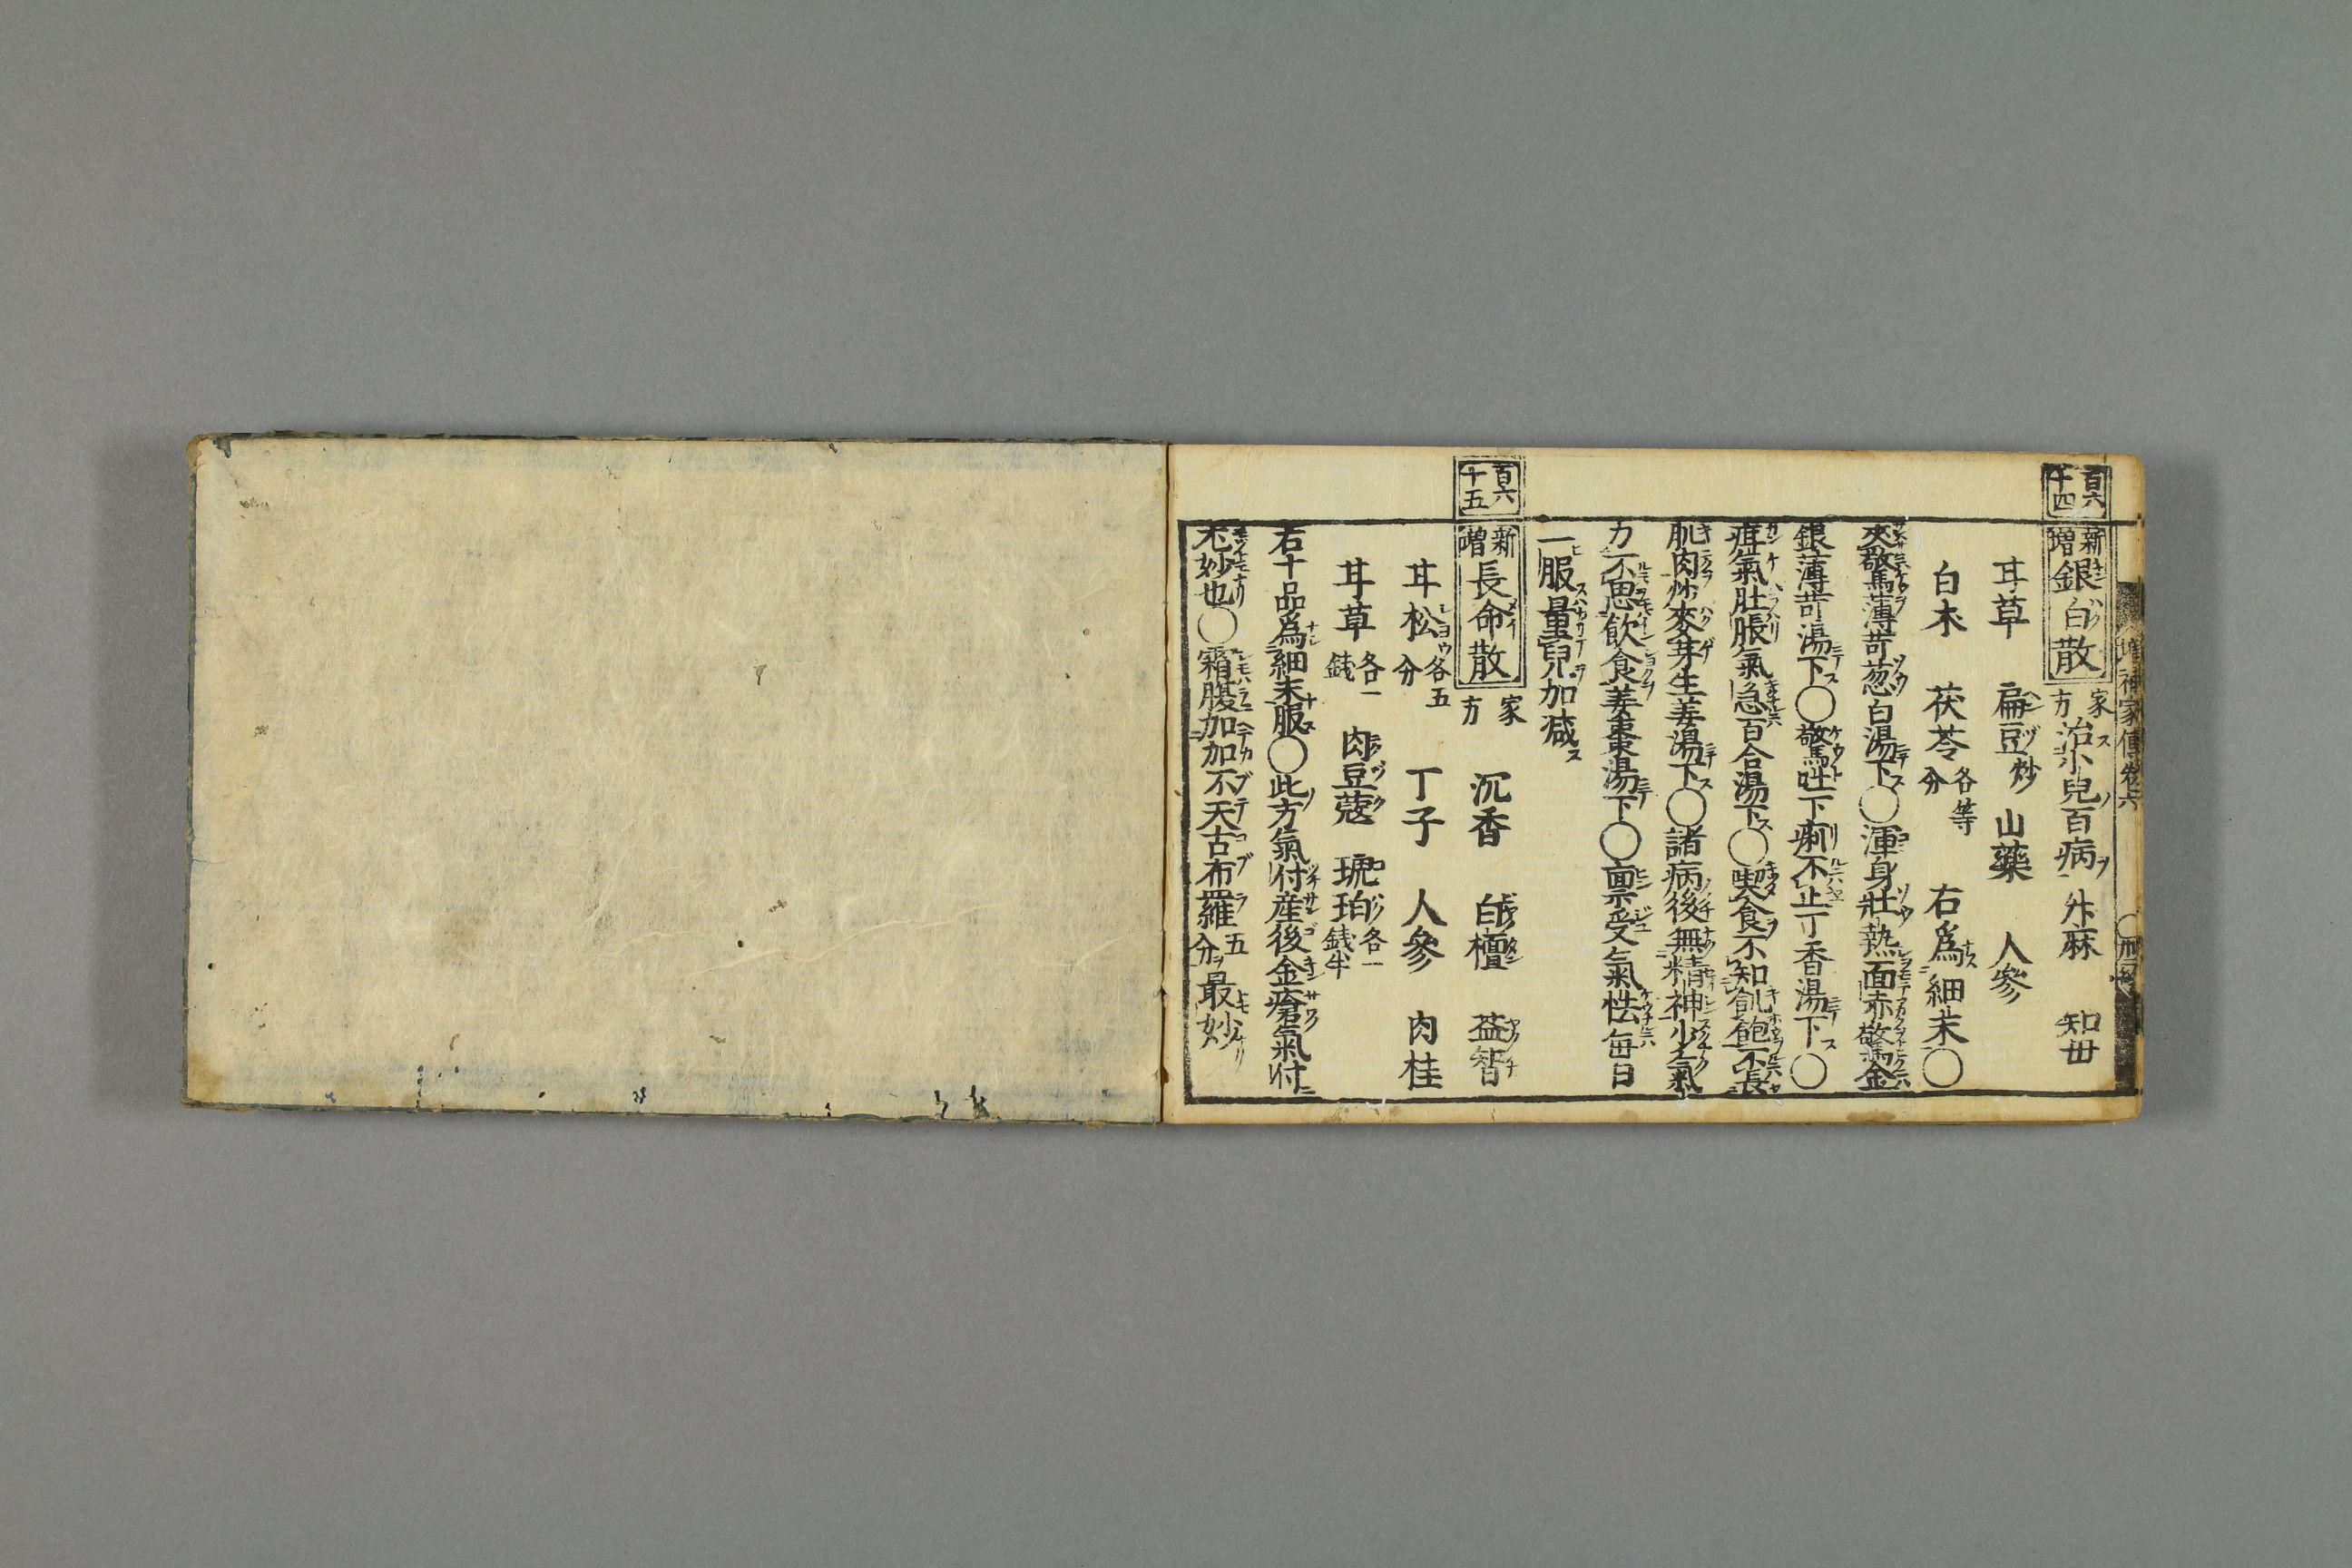 百六十四
新増銀白散 家方 治小兒百病 升麻 知毋
甘草 扁豆炒 山藥 人參
白朮 茯苓各等分 右爲細末〇
夾驚薄苛葱白湯下〇渾身壯熱面赤驚金
銀薄苛湯下〇驚吐下痢不止丁香湯下〇
疳氣肚脹氣急百合湯下〇喫食不知飢飽不長
肌肉炒麥芽生姜湯下〇諸病後無精神少氣
力不思飲食姜棗湯下〇禀受氣怯毎日
一服量兒加减
百六十五
新増長命散 家方 沉香 白檀 益智
甘松各五分 丁子 人參 肉桂
甘草各一銭 肉豆蔲 琥珀各一銭半
右十品爲細末服〇此方氣付産後金瘡氣付
尤妙也〇霜腹加加不天古布羅五分最妙